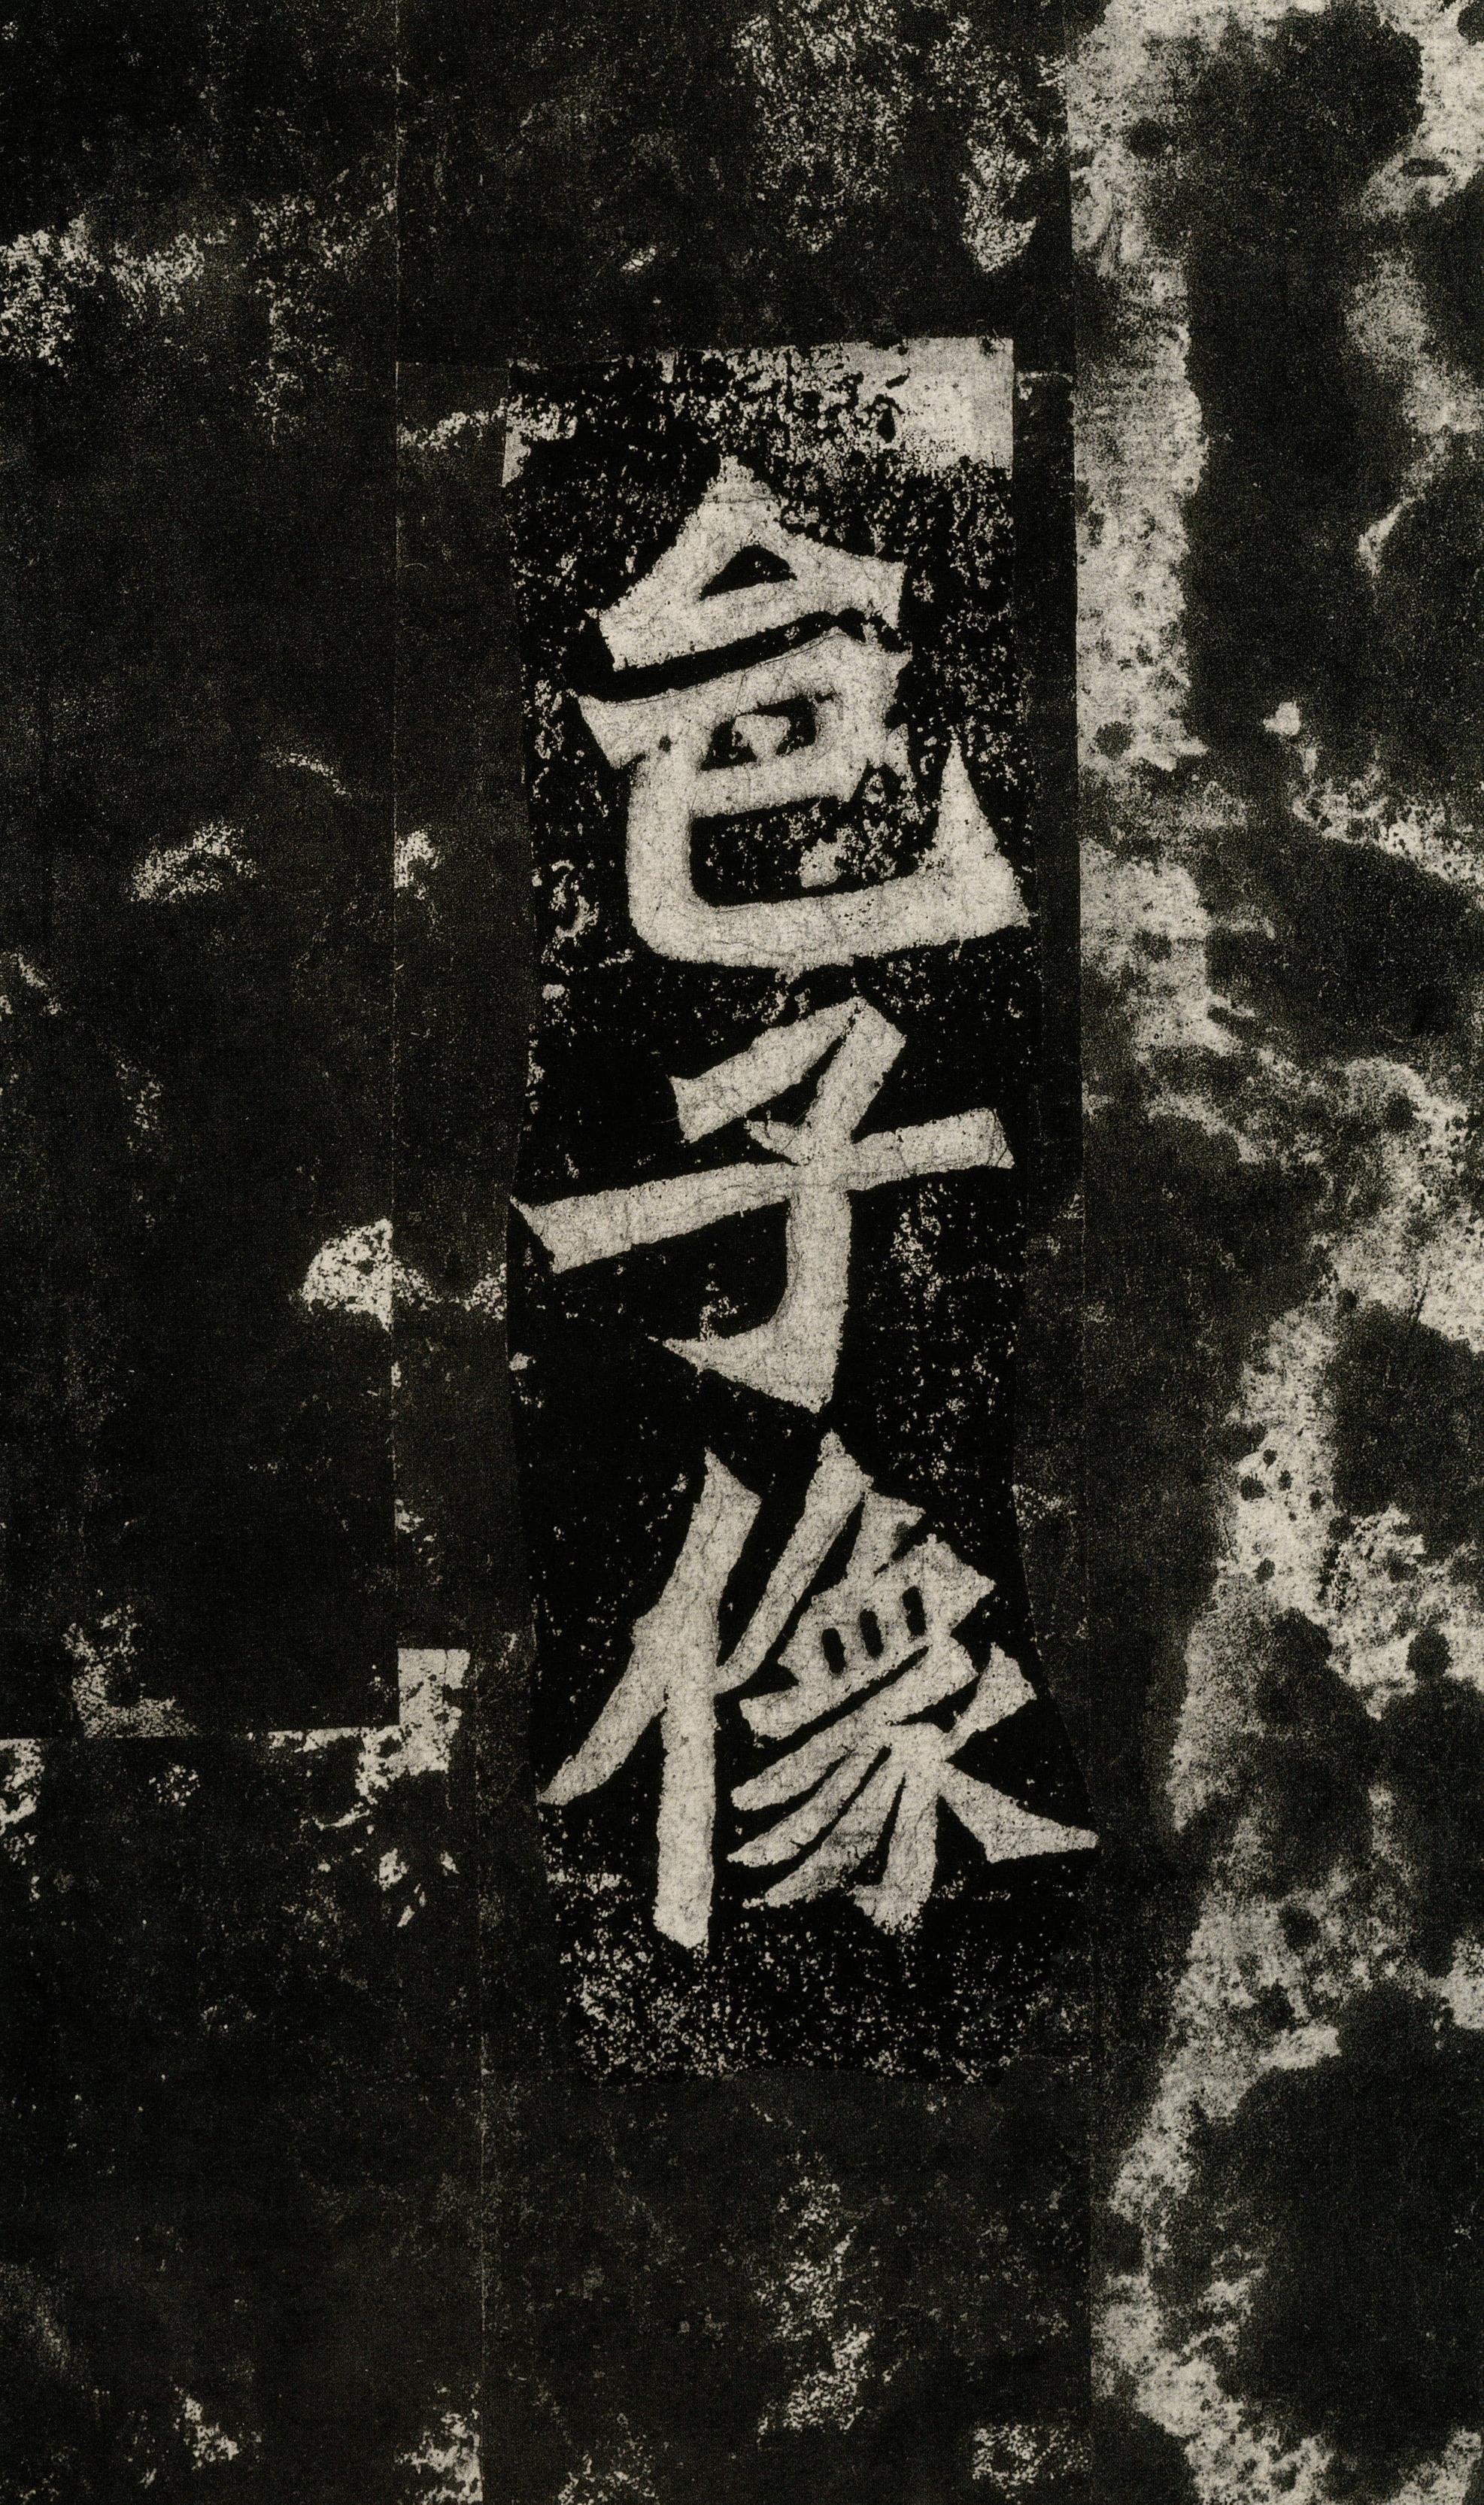 邑子像